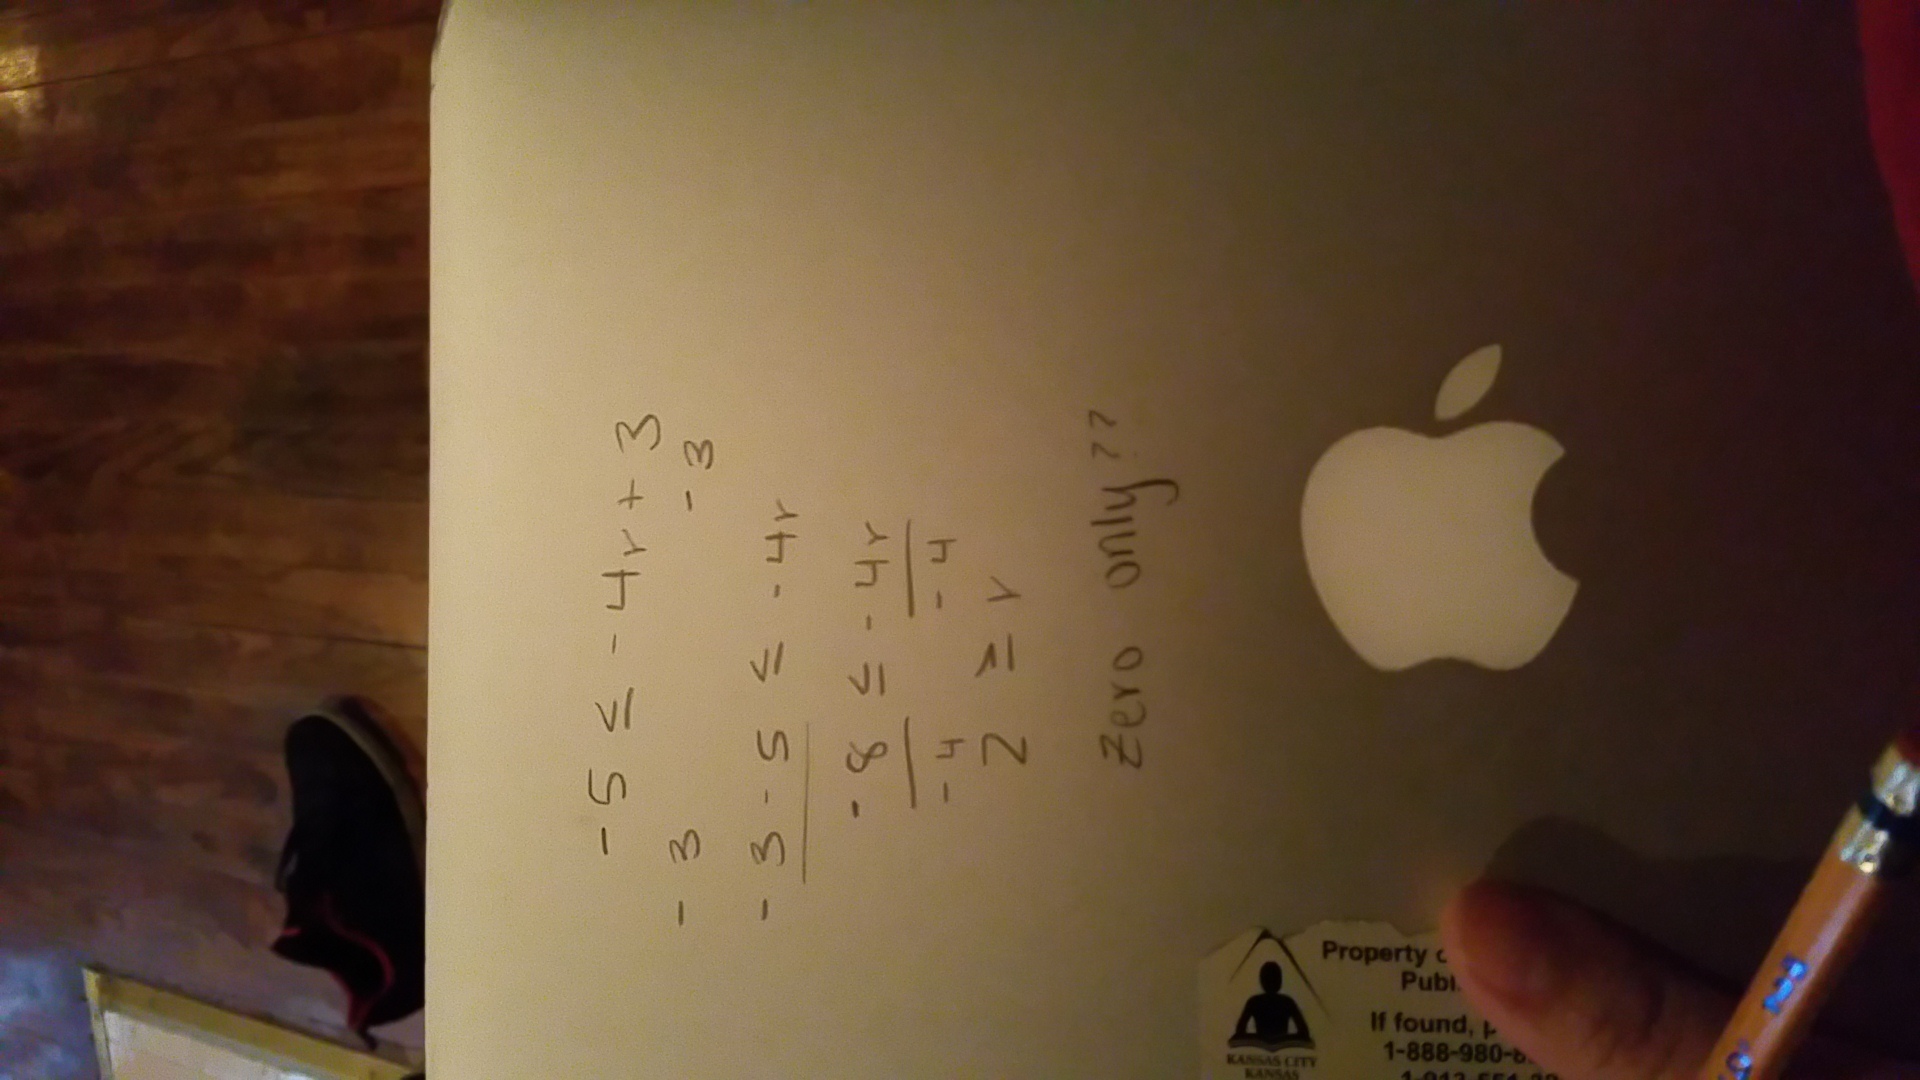 -5 ≤ -4r + 3
-3 -3
-3 -5 ≤ -4r
-8 ≤ -4r
-4 -4
2 ≥ r
Zero only??
Property
If found,
1-888-980-
KANSAS CITY
KANSAS
2